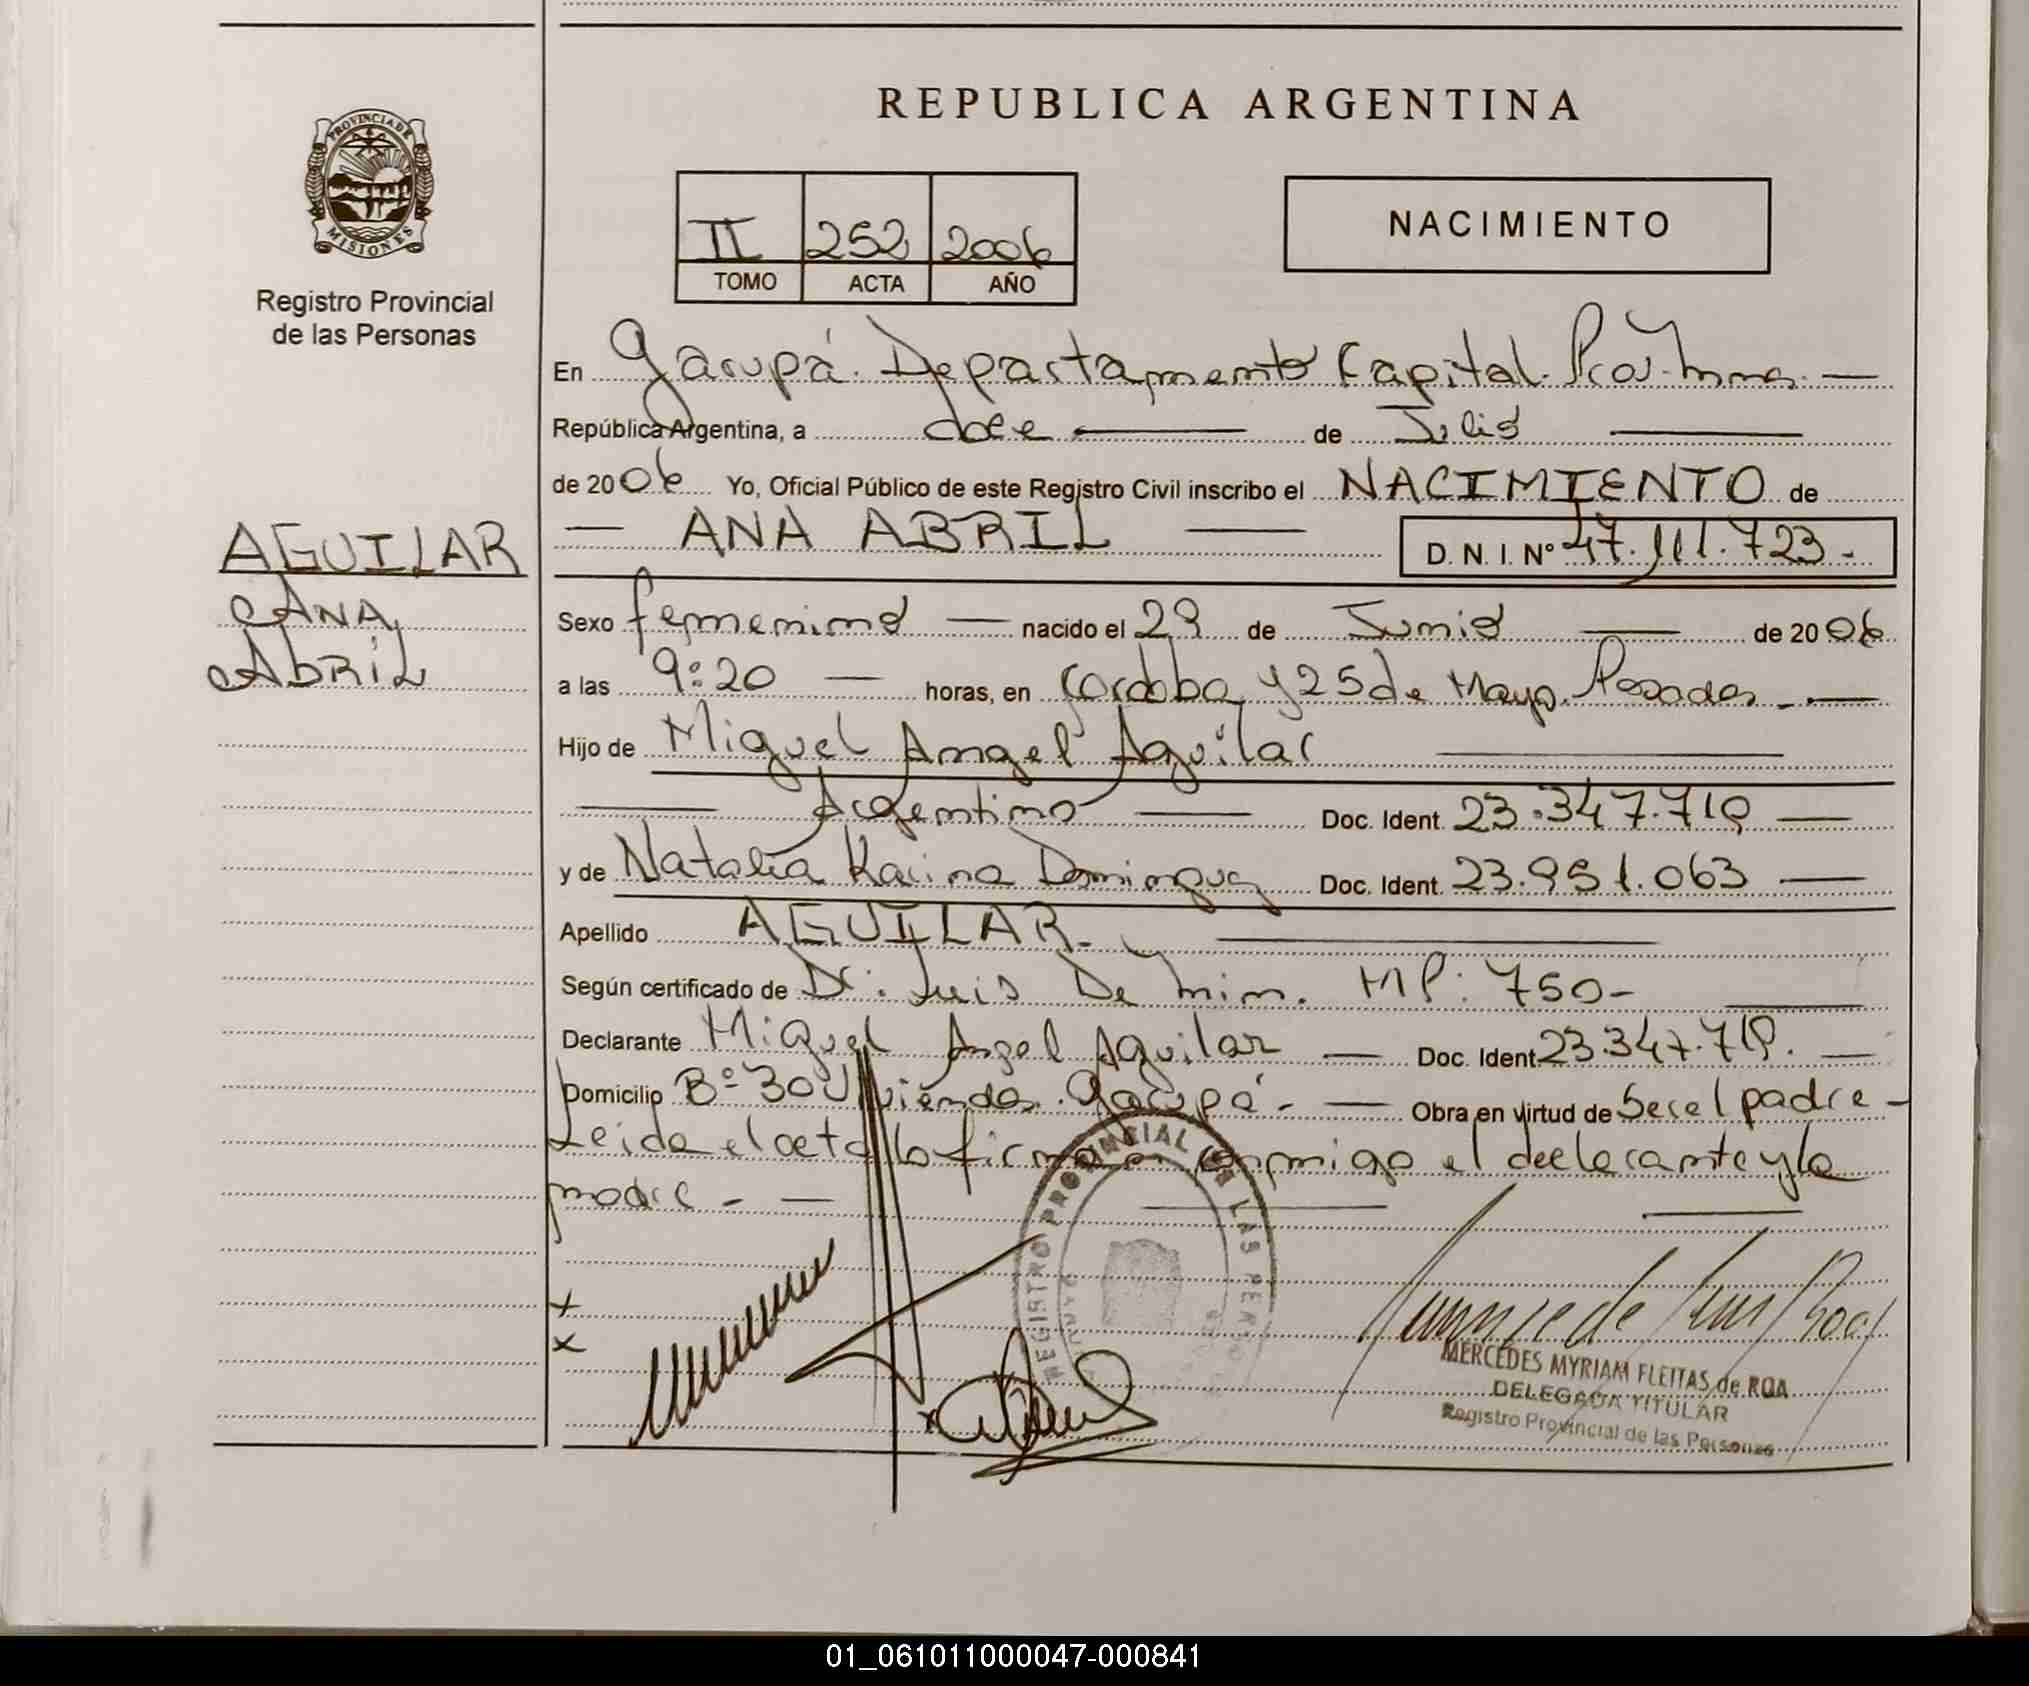 REPUBLICA ARGENTINA
PROVINCIA DE MISIONES
Registro Provincial
de las Personas
II 252 2006
TOMO ACTA AÑO
NACIMIENTO
En Garupá. Departamento Capital. Prov. Mnes. —
República Argentina, a doce — de Julio —
de 2006 Yo, Oficial Público de este Registro Civil inscribo el NACIMIENTO de
— ANA ABRIL — D. N. I. Nº 47.111.723.-
AGUILAR
ANA
ABRIL
Sexo femenino — nacido el 29 de Junio — de 2006
a las 9:20 — horas, en Cordoba y 25 de Mayo. Posadas. —
Hijo de Miguel Angel Aguilar —
— Argentino — Doc. Ident. 23.347.719 —
y de Natalia Karina Dominguez Doc. Ident. 23.951.063 —
Apellido AGUILAR. —
Según certificado de Dr. Luis De Mim. MP: 750- —
Declarante Miguel Angel Aguilar — Doc. Ident 23.347.719. —
Domicilio Bº 30 Viviendas. Garupá.- — Obra en virtud de Ser el padre -
Leida el acta lo firman conmigo el declarante y la
madre - —
REGISTRO PROVINCIAL DE LAS PERSONAS
MERCEDES MYRIAM FLEITAS de ROA
DELEGADA TITULAR
Registro Provincial de las Personas
01_061011000047-000841